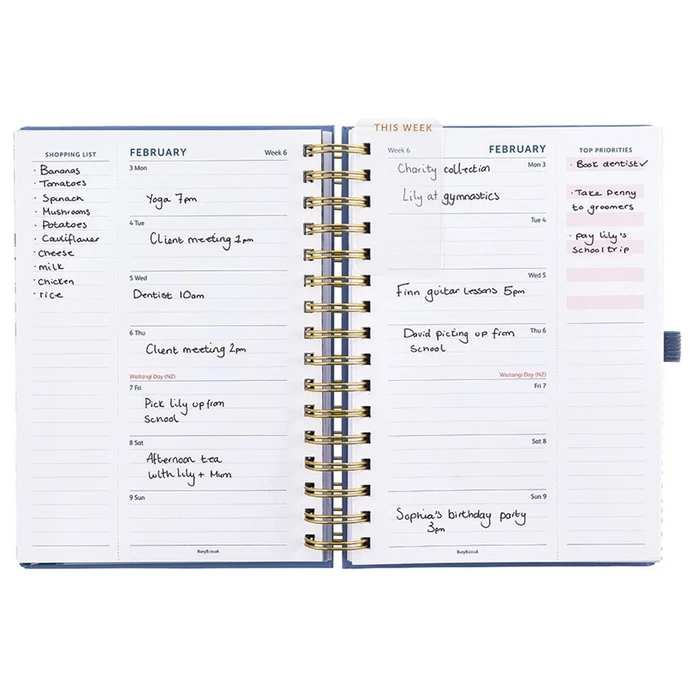 SHOPPING LIST
· Bananas
· Tomatoes
· Spinach
· Mushrooms
· Potatoes
· Cauliflower
· cheese
· milk
· chicken
· rice
FEBRUARY Week 6
3 Mon
Yoga 7pm
4 Tue
Client meeting 1pm
5 Wed
Dentist 10am
6 Thu
Client meeting 2pm
Waitangi Day (NZ)
7 Fri
Pick lily up from
School
8 Sat
Afternoon tea
with lily + Mum
9 Sun
BusyB.co.uk
THIS WEEK
Week 6 FEBRUARY
Mon 3
Charity collection
Lily at gymnastics
Tue 4
Wed 5
Finn guitar lessons 5pm
Thu 6
David picting up from
School
Waitangi Day (NZ)
Fri 7
Sat 8
Sun 9
Sophia's birthday party
3pm
BusyB.co.uk
TOP PRIORITIES
· Book dentist ✓
· Take Penny
to groomers
· pay lily's
school trip